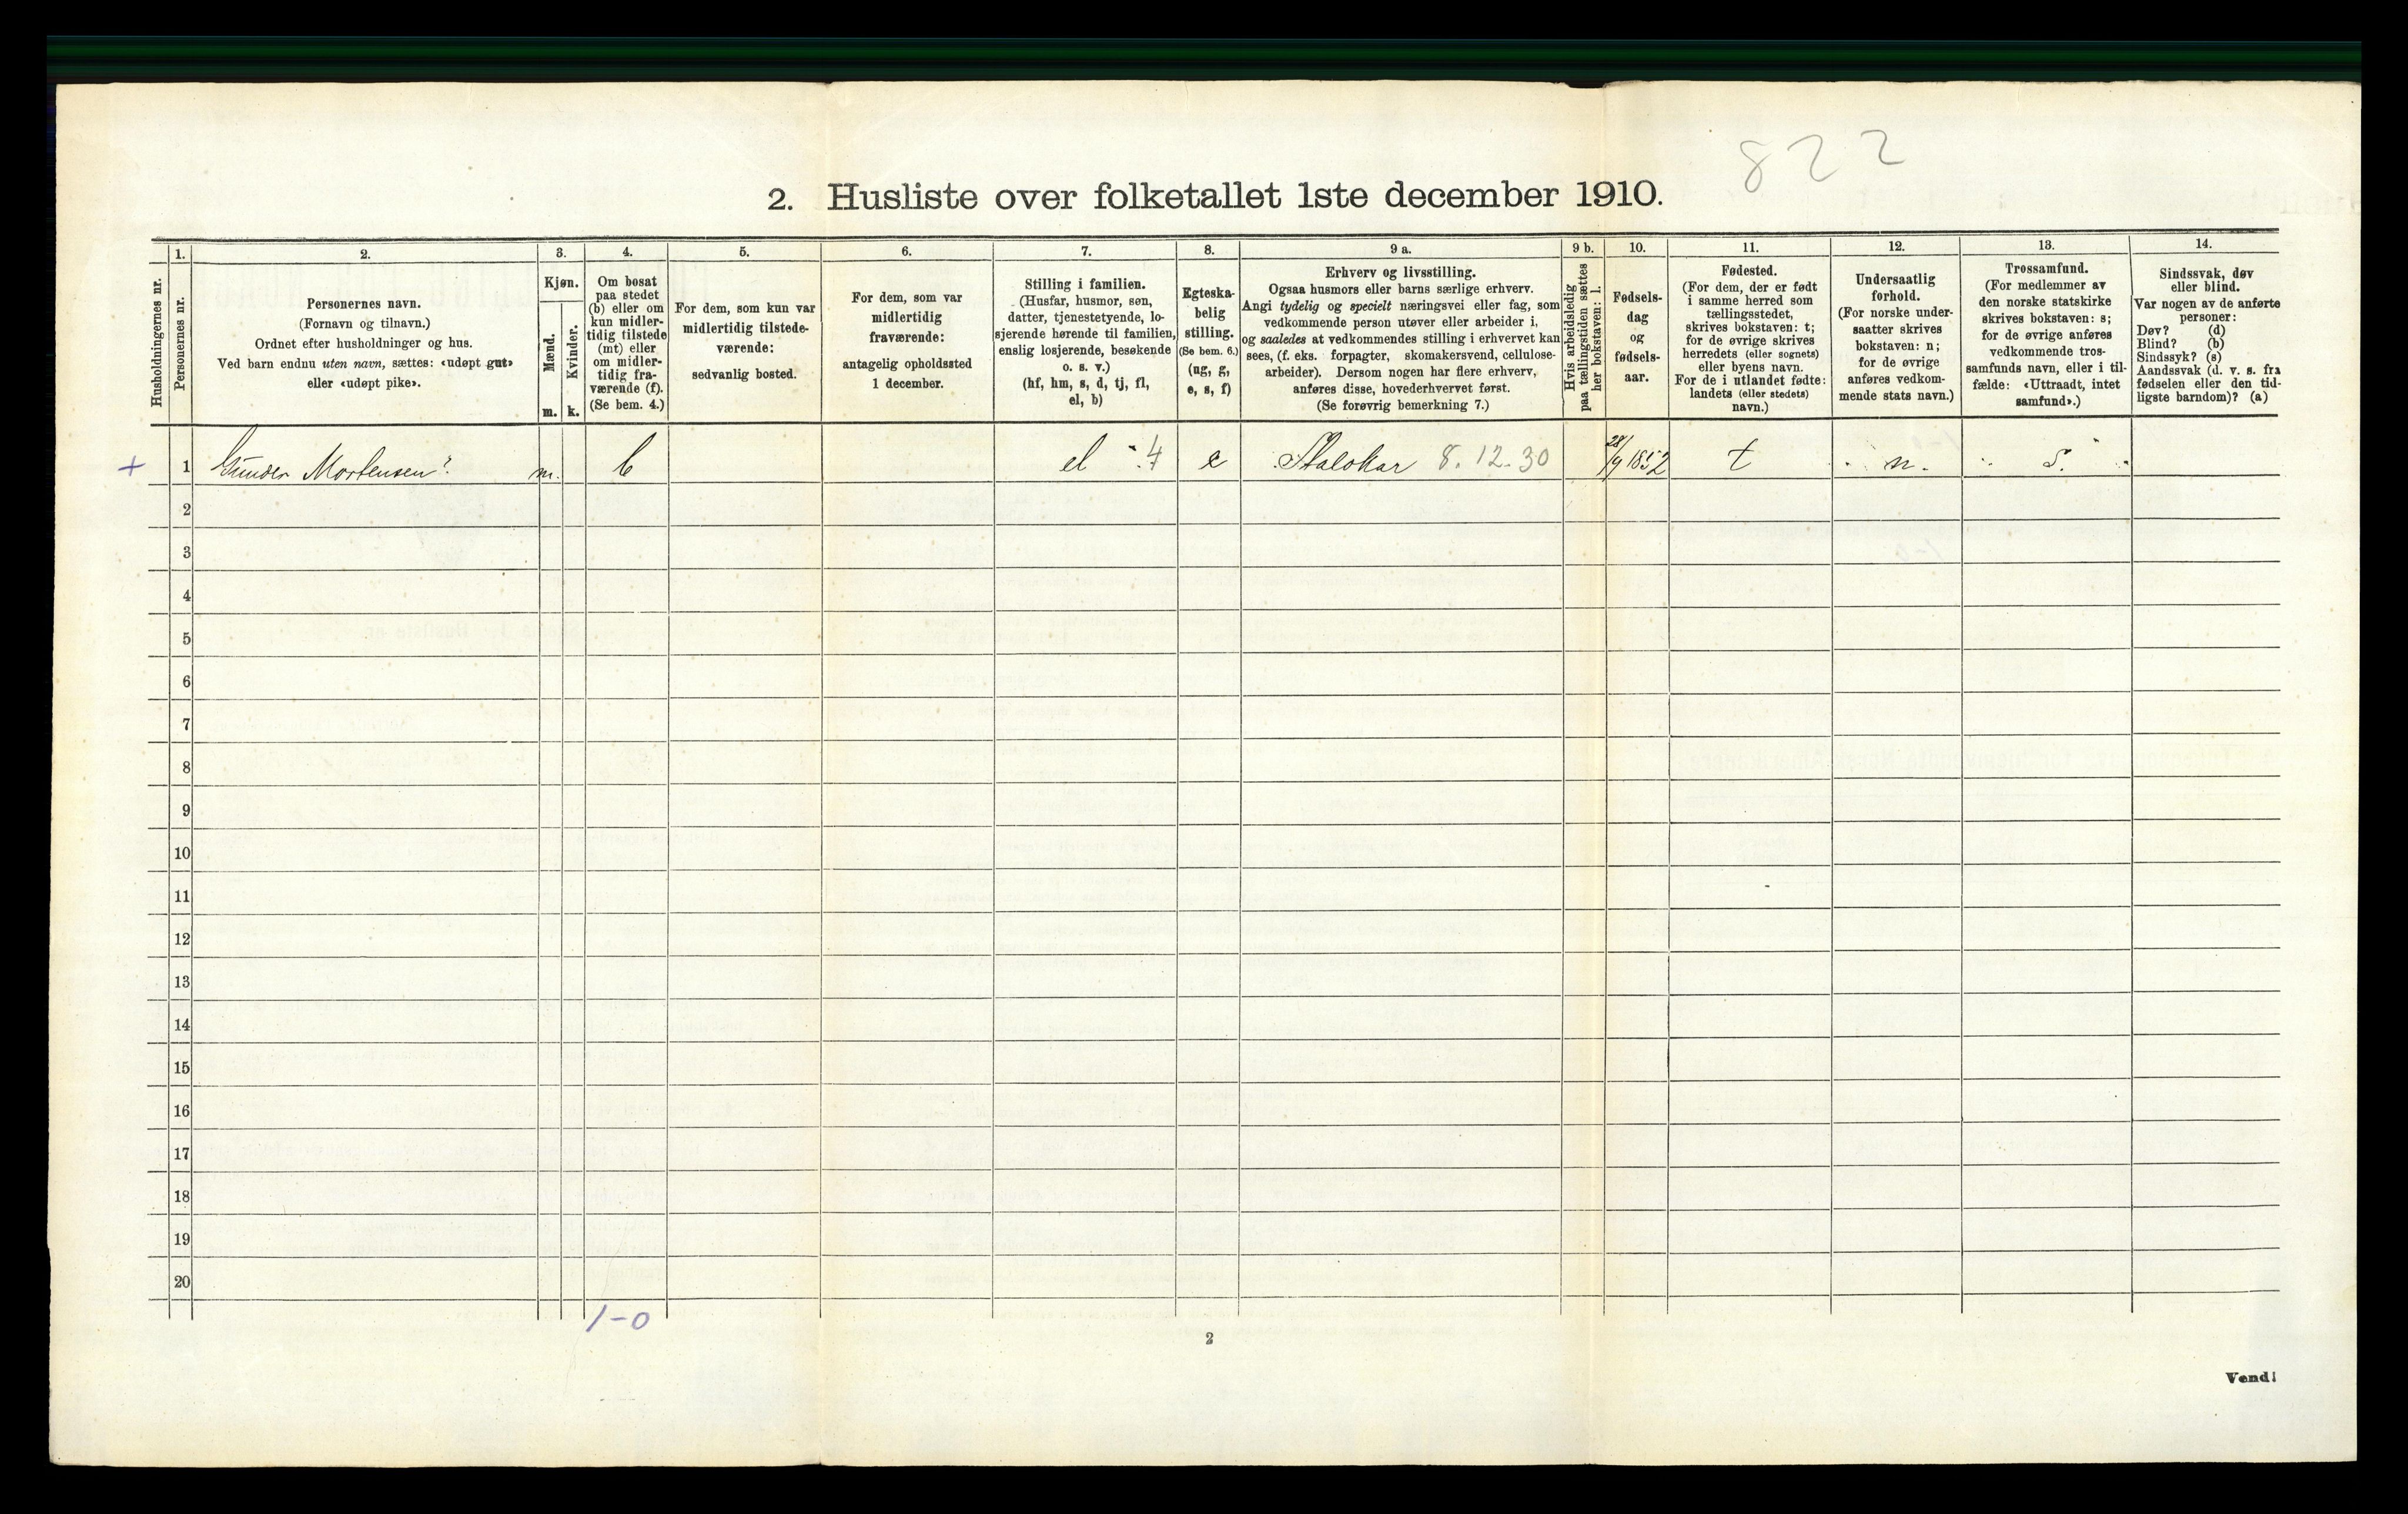 822
2. Husliste over folketallet 1ste december 1910.
Husholdningernes nr.
1.
Personernes nr.
2.
Personernes navn.
(Fornavn og tilnavn.)
Ordnet efter husholdninger og hus.
Ved barn endnu uten navn, sættes: «udøpt gut»
eller «udøpt pike».
3.
Kjøn.
Mænd.
m.
Kvinder.
k.
4.
Om bosat
paa stedet
(b) eller om
kun midler-
tidig tilstede
(mt) eller
om midler-
tidig fra-
værende (f).
(Se bem. 4.)
5.
For dem, som kun var
midlertidig tilstede-
værende:
sedvanlig bosted.
6.
For dem, som var
midlertidig
fraværende:
antagelig opholdssted
1 december.
7.
Stilling i familien.
(Husfar, husmor, søn,
datter, tjenestetyende, lo-
sjerende hørende til familien,
enslig losjerende, besøkende
o. s. v.)
(hf, hm, s, d, tj, fl,
el, b)
8.
Egteska-
belig
stilling.
(Se bem. 6.)
(ug, g,
e, s, f)
9 a.
Erhverv og livsstilling.
Ogsaa husmors eller barns særlige erhverv.
Angi tydelig og specielt næringsvei eller fag, som
vedkommende person utøver eller arbeider i,
og saaledes at vedkommendes stilling i erhvervet kan
sees, (f. eks. forpagter, skomakersvend, cellulose-
arbeider). Dersom nogen har flere erhverv,
anføres disse, hovederhvervet først.
(Se forøvrig bemerkning 7.)
9 b.
Hvis arbeidsledig
paa tællingstiden sættes
her bokstaven: l.
10.
Fødsels-
dag
og
fødsels-
aar.
11.
Fødested.
(For dem, der er født
i samme herred som
tællingsstedet,
skrives bokstaven: t;
for de øvrige skrives
herredets (eller sognets)
eller byens navn.
For de i utlandet fødte:
landets (eller stedets)
navn.)
12.
Undersaatlig
forhold.
(For norske under-
saatter skrives
bokstaven: n;
for de øvrige
anføres vedkom-
mende stats navn.)
13.
Trossamfund.
(For medlemmer av
den norske statskirke
skrives bokstaven: s;
for de øvrige anføres
vedkommende tros-
samfunds navn, eller i til-
fælde: «Uttraadt, intet
samfund».)
14.
Sindssvak, døv
eller blind.
Var nogen av de anførte
personer:
Døv? (d)
Blind? (b)
Sindssyk? (s)
Aandssvak (d. v. s. fra
fødselen eller den tid-
ligste barndom)? (a)
+ 1 Gunder Mortensen m. b el 4 e 8.12.30 28/9 1852 t n. s.
2
3
4
5
6
7
8
9
10
11
12
13
14
15
16
17
18
19
20
1-0
2
Vend!